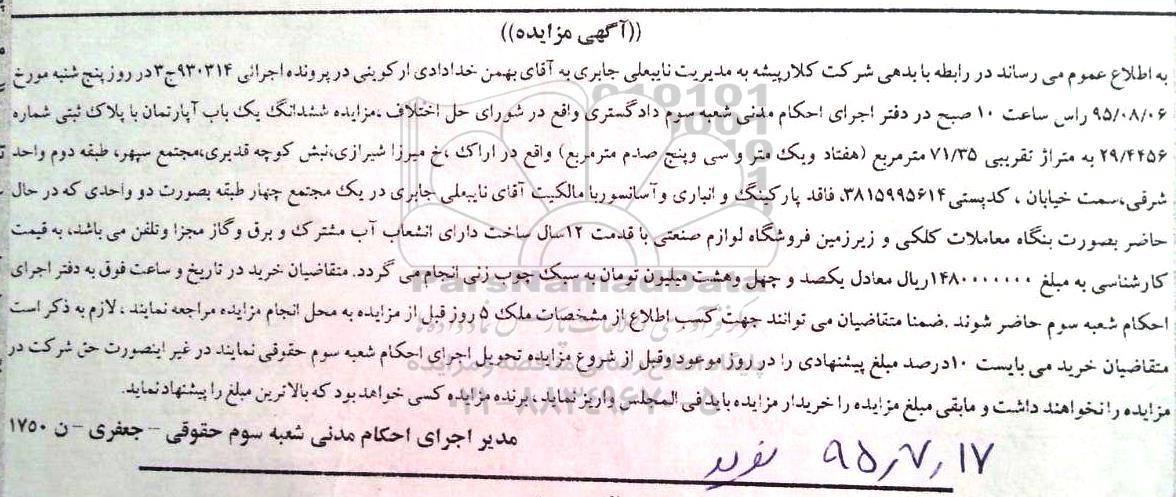 ((آگهی مزایده))
به اطلاع عموم می رساند در رابطه با بدهی شرکت کلارپیشه به مدیریت نایبعلی جابری به آقای بهمن خدادادی ارکوینی در پرونده اجرائی ۹۳۰۳۱۴ج۳ در روز پنج شنبه مورخ
۹۵/۰۸/۰۶ راس ساعت ۱۰ صبح در دفتر اجرای احکام مدنی شعبه سوم دادگستری واقع در شورای حل اختلاف ،مزایده ششدانگ یک باب آپارتمان با پلاک ثبتی شماره
۲۹/۴۴۵۶ به متراژ تقریبی ۷۱/۳۵ مترمربع (هفتاد ویک متر و سی وپنج صدم مترمربع) واقع در اراک ،خ میرزا شیرازی،نبش کوچه قدیری،مجتمع سپهر، طبقه دوم واحد
شرقی،سمت خیابان ، کدپستی۳۸۱۵۹۹۵۶۱۴، فاقد پارکینگ و انباری وآسانسوربا مالکیت آقای نایبعلی جابری در یک مجتمع چهار طبقه بصورت دو واحدی که در حال
حاضر بصورت بنگاه معاملات کلکی و زیرزمین فروشگاه لوازم صنعتی با قدمت ۱۲سال ساخت دارای انشعاب آب مشترک و برق وگاز مجزا وتلفن می باشد، به قیمت
کارشناسی به مبلغ ۱۴۸۰۰۰۰۰۰۰ریال معادل یکصد و چهل وهشت میلیون تومان به سبک چوب زنی انجام می گردد. متقاضیان خرید در تاریخ و ساعت فوق به دفتر اجرای
احکام شعبه سوم حاضر شوند .ضمنا متقاضیان می توانند جهت کسب اطلاع از مشخصات ملک ۵ روز قبل از مزایده به محل انجام مزایده مراجعه نمایند ، لازم به ذکر است
متقاضیان خرید می بایست ۱۰درصد مبلغ پیشنهادی را در روز موعود وقبل از شروع مزایده تحویل اجرای احکام شعبه سوم حقوقی نمایند در غیر اینصورت حق شرکت در
مزایده را نخواهند داشت و مابقی مبلغ مزایده را خریدار مزایده باید فی المجلس واریز نماید ، برنده مزایده کسی خواهد بود که بالاترین مبلغ را پیشنهاد نماید.
مدیر اجرای احکام مدنی شعبه سوم حقوقی – جعفری – ن ۱۷۵۰
۹۵٫۷٫۱۷
ParsNamadData
۰۲۱-۸۸۳۴۹۶۷۰-۵